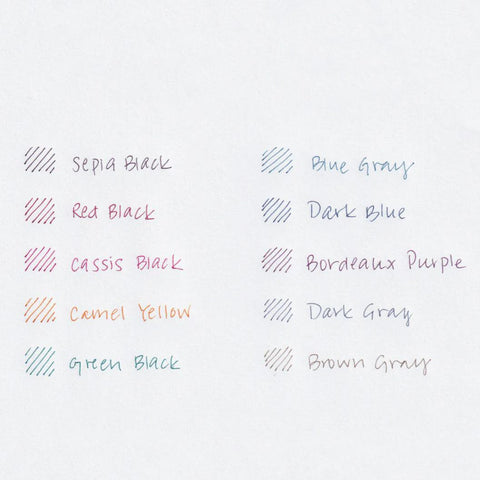 Sepia Black
Red Black
Cassis Black
Camel Yellow
Green Black
Blue Gray
Dark Blue
Bordeaux Purple
Dark Gray
Brown Gray